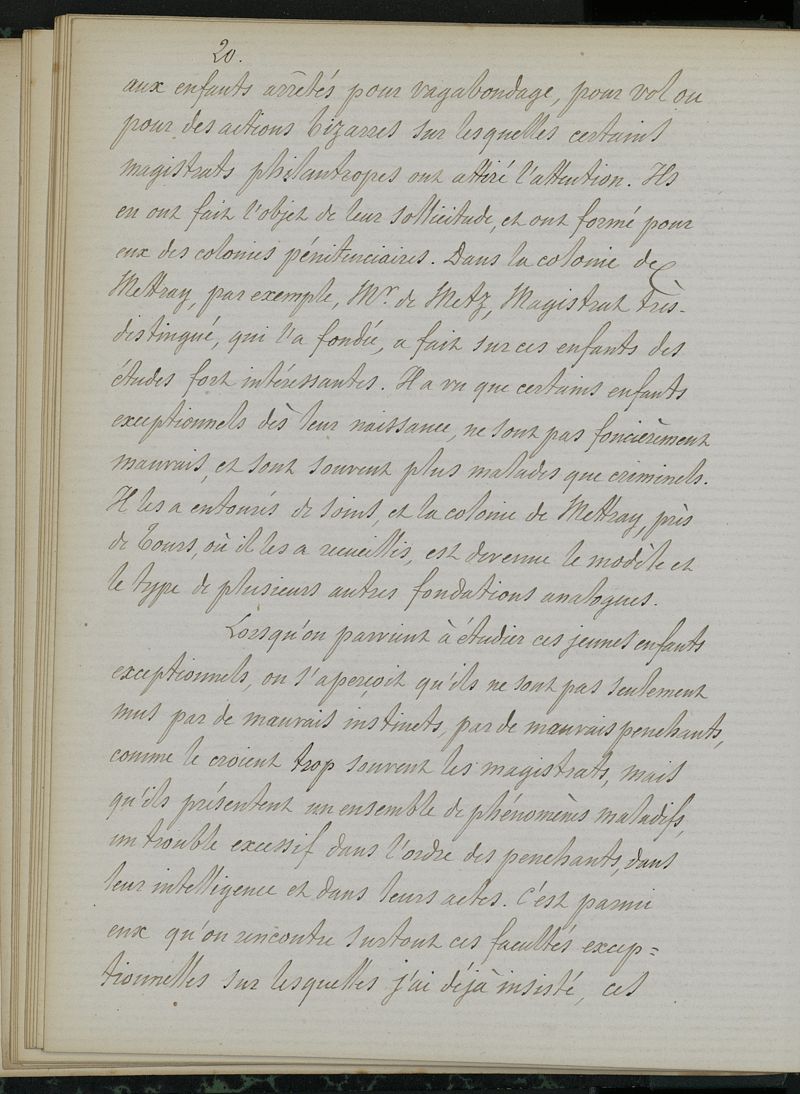 20.
aux enfants arrêtés pour vagabondage, pour vol ou
pour des actions bizarres sur lesquelles certains
magistrats philantropes ont attiré l'attention. Ils
en ont fait l'objet de leur sollicitude, et ont formé pour
eux des colonies pénitenciaires. Dans la colonie de
Mettray, par exemple, Mr. de Metz, Magistrat très-
distingué, qui l'a fondée, a fait sur ces enfants des
études fort intéressantes. Il a vu que certains enfants
exceptionnels dès leur naissance, ne sont pas foncièrement
mauvais, et sont souvent plus malades que criminels.
Il les a entourés de soins, et la colonie de Mettray, près
de Tours, où il les a recueillis, est devenue le modèle et
le type de plusieurs autres fondations analogues.
Lorsqu'on parvient à étudier ces jeunes enfants
exceptionnels, on s'aperçoit qu'ils ne sont pas seulement
mus par de mauvais instincts, par de mauvais penchants,
comme le croient trop souvent les magistrats, mais
qu'ils présentent un ensemble de phénomènes maladifs,
un trouble excessif dans l'ordre des penchants, dans
leur intelligence et dans leurs actes. C'est parmi
eux qu'on rencontre surtout ces facultés excep=
tionnelles sur lesquelles j'ai déjà insisté, ces